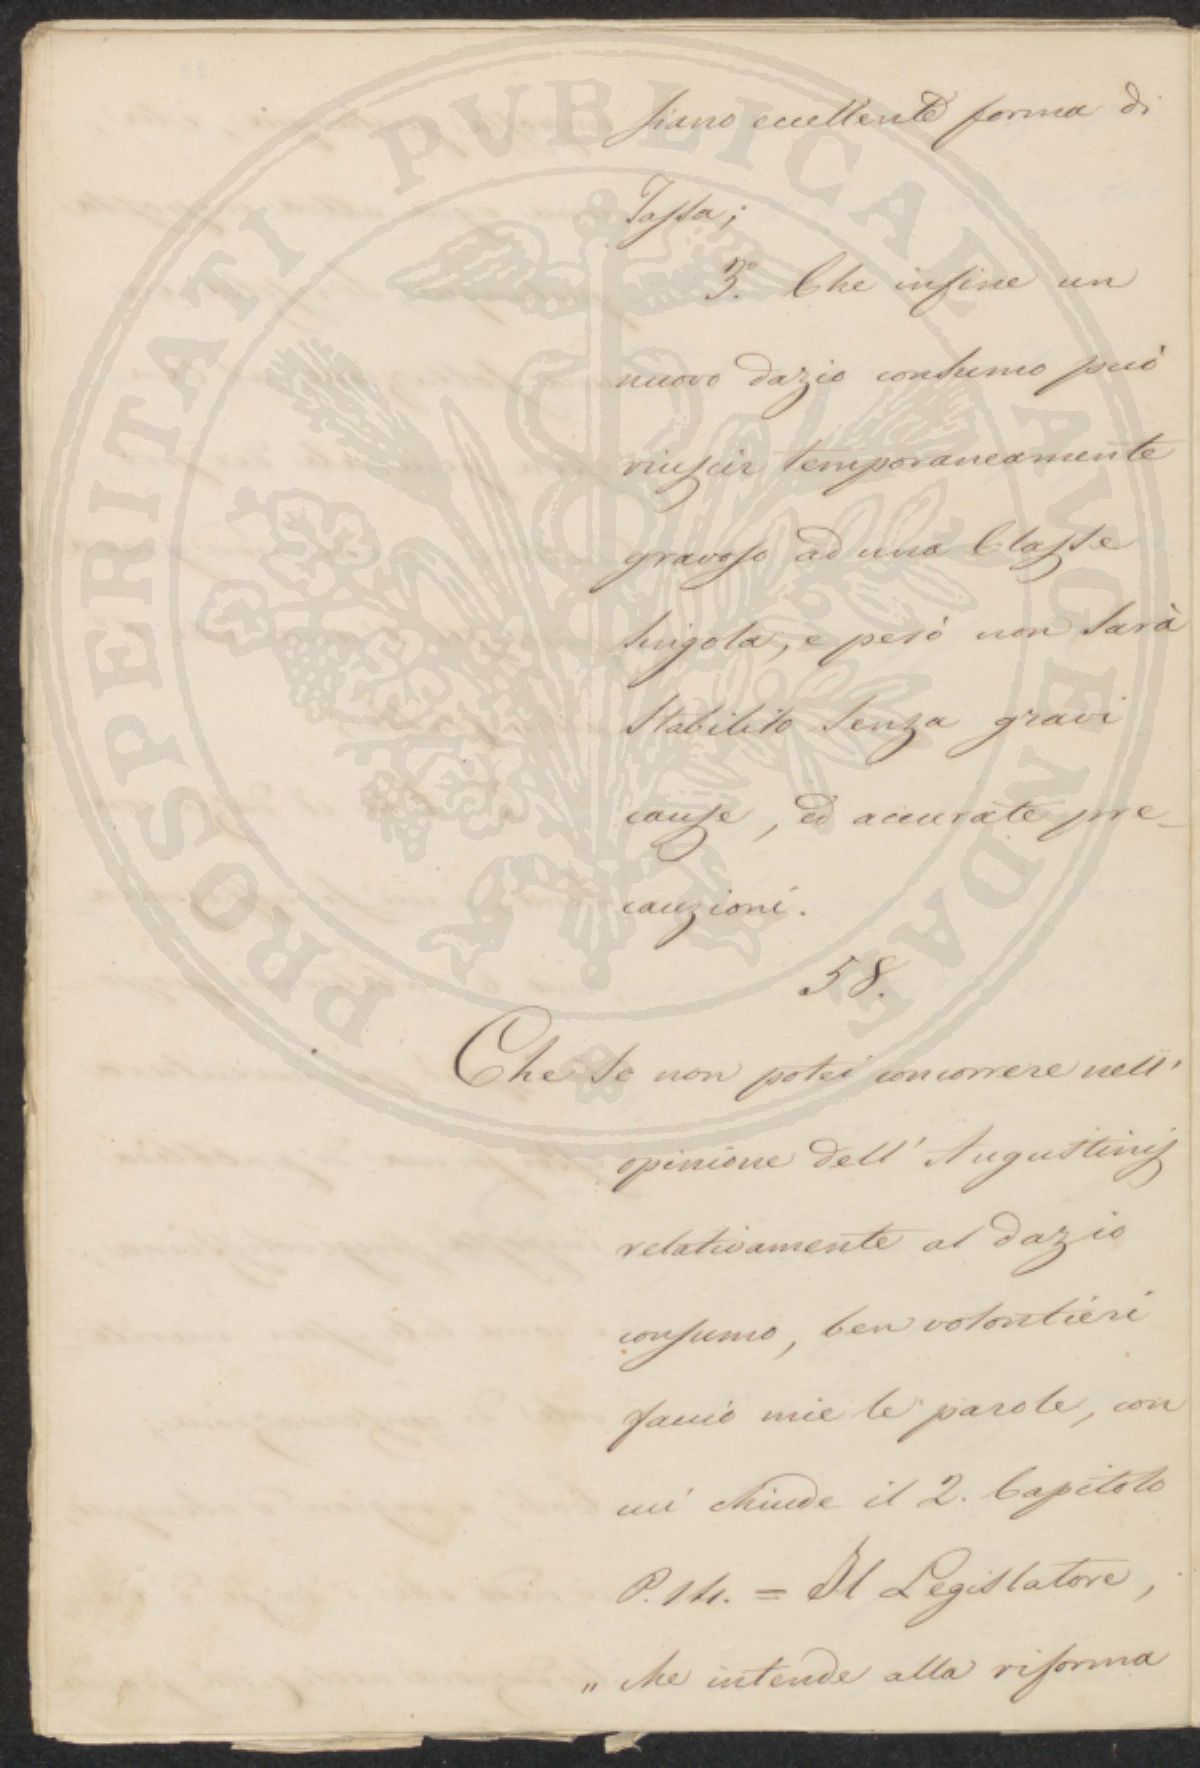 siano eccellente forma di
Tassa;
3.° Che infine un
nuovo dazio consumo può
riuscir temporaneamente
gravoso ad una Classe
singola, e però non sarà
stabilito senza gravi
cause, ed accurate pre-
cauzioni.
58.
Che se non potei concorrere nell'
opinione dell' Augustinis
relativamente al dazio
consumo, ben volontieri
faccio mie le parole, con
cui chiude il 2. Capitolo
P. 14. = Il Legislatore,
" che intende alla riforma
PROSPERITATI PUBLICAE AUGENDAE